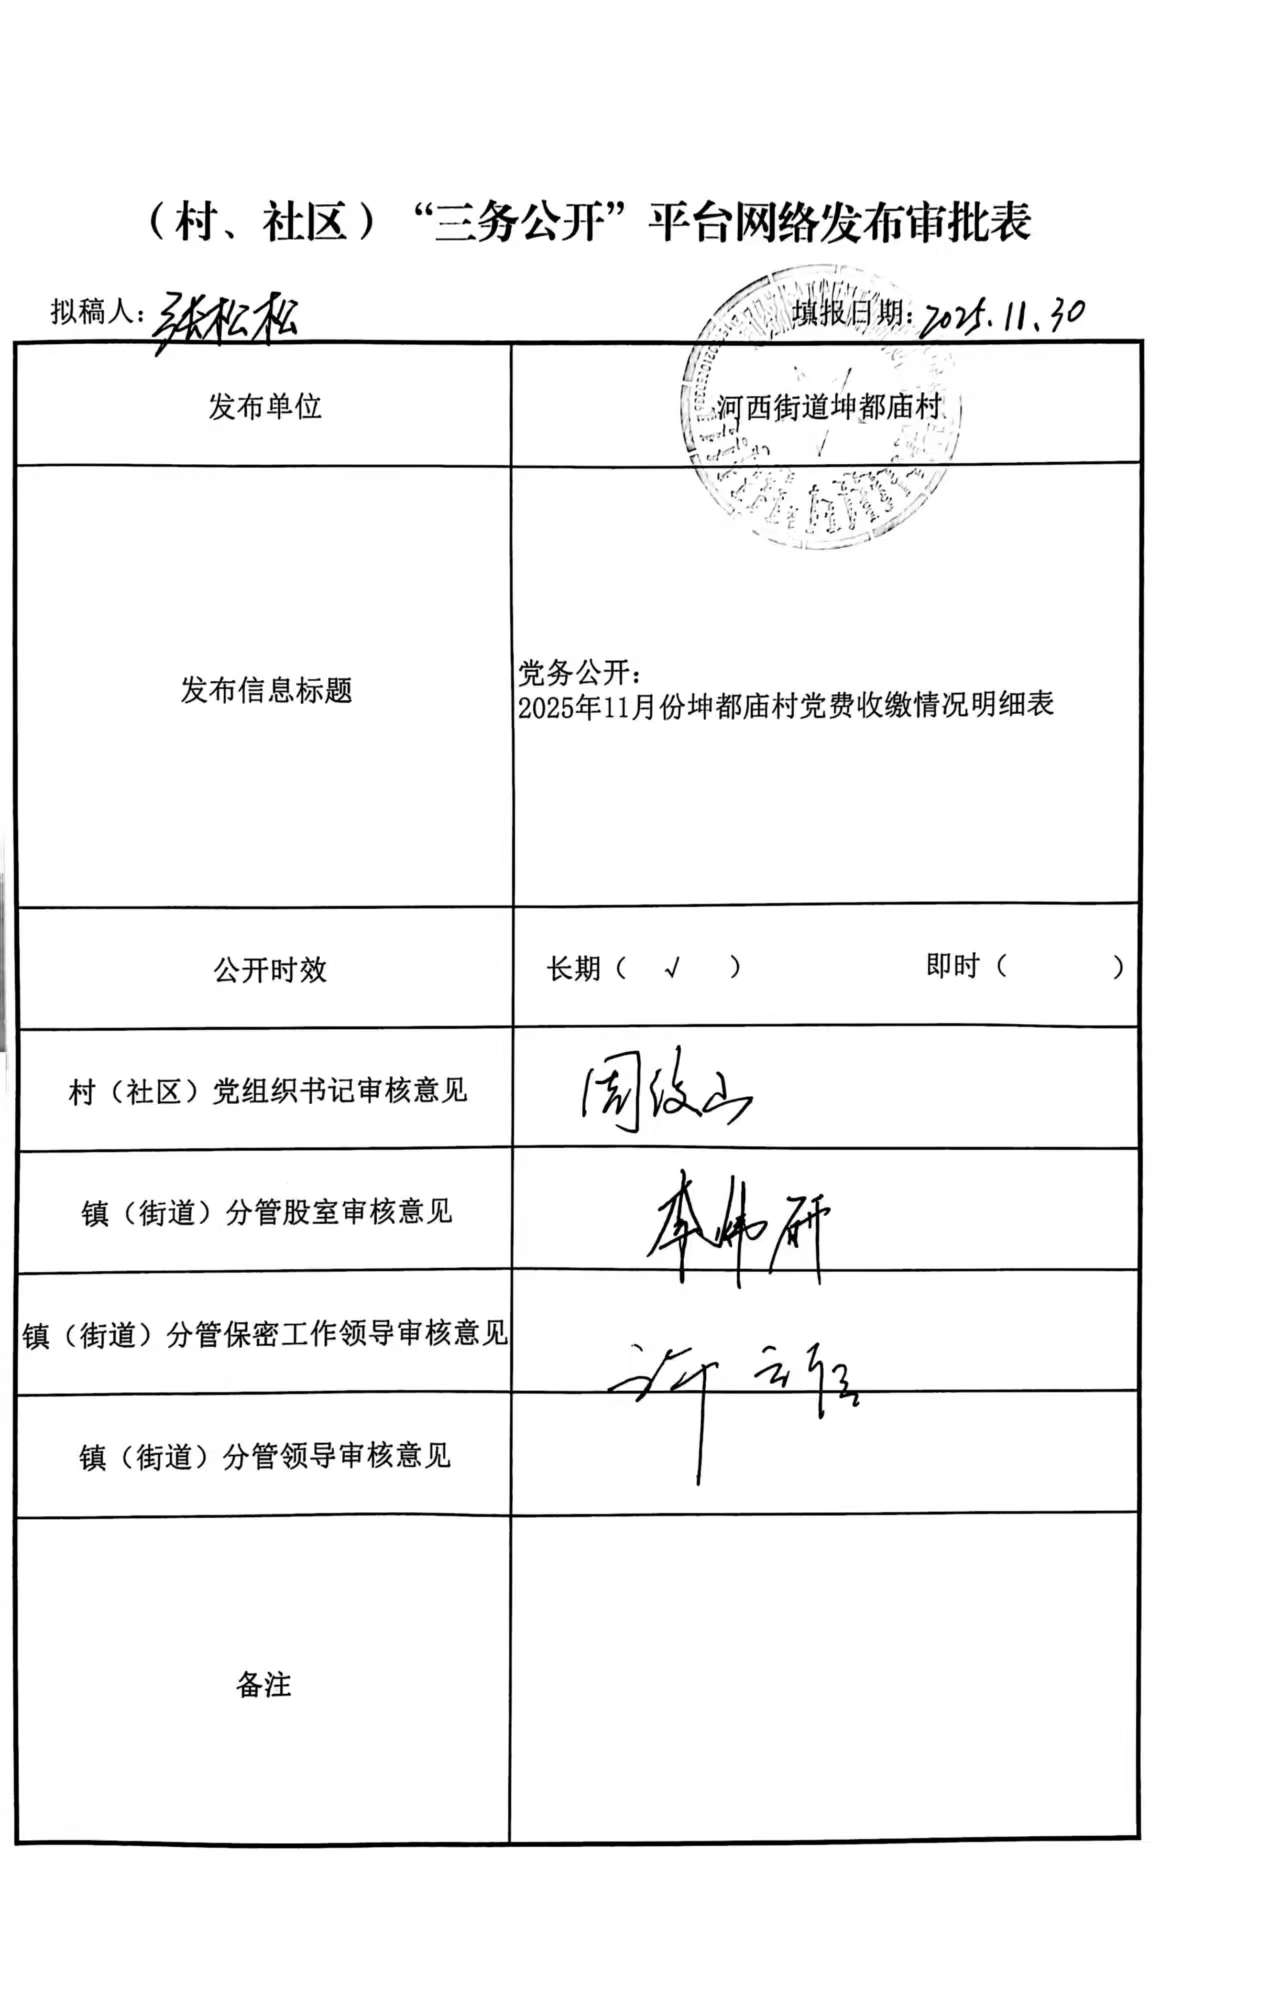 （村、社区）“三务公开”平台网络发布审批表
拟稿人：张松松 填报日期：2025.11.30
发布单位 河西街道坤都庙村
发布信息标题 党务公开：
2025年11月份坤都庙村党费收缴情况明细表
公开时效 长期（ √ ） 即时（ ）
村（社区）党组织书记审核意见
镇（街道）分管股室审核意见
镇（街道）分管保密工作领导审核意见
镇（街道）分管领导审核意见
备注